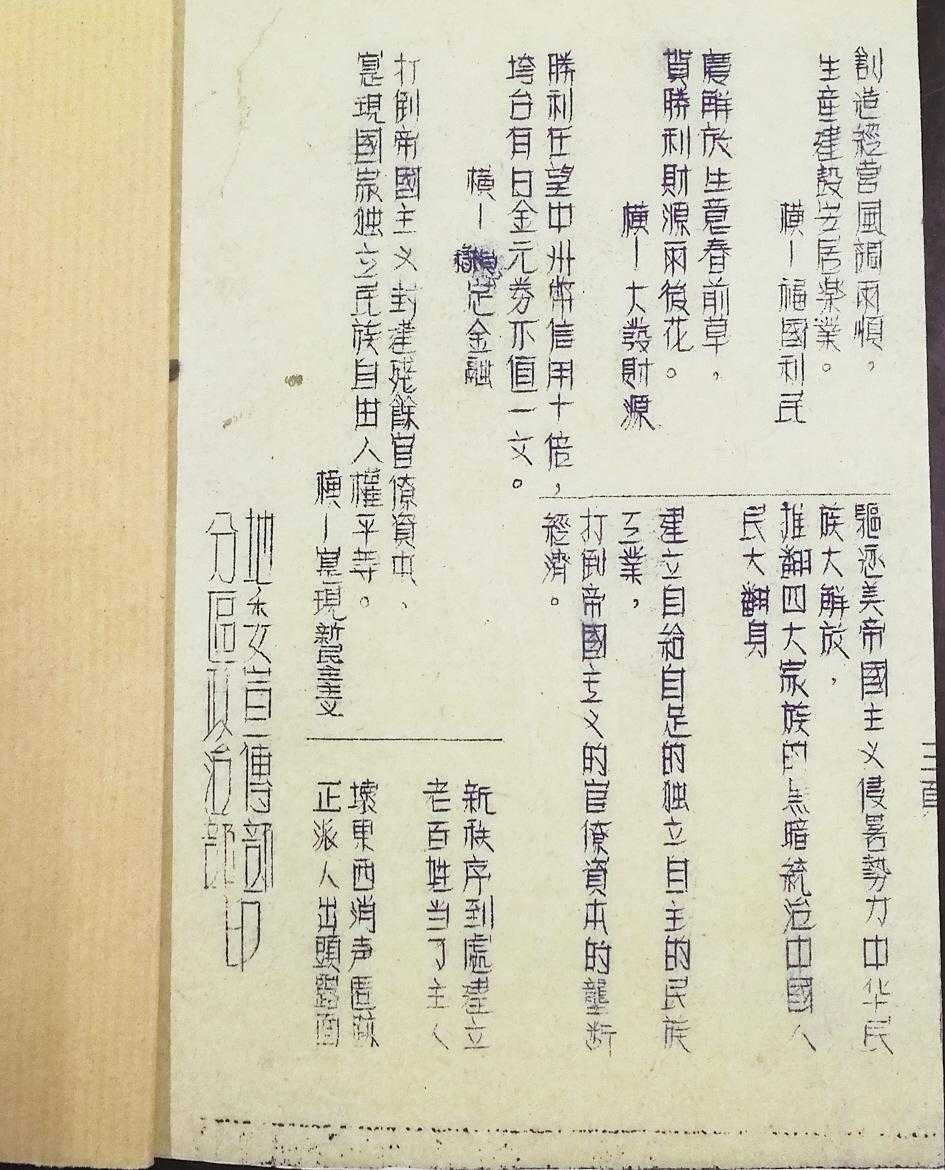 創造經营風調雨順，
生産建設安居楽業。
橫—福國利民
慶解放生意春前草，
賀勝利財源雨後花。
橫—大發財源
勝利在望中州幣信用十倍，
垮台有日金元券不值一文。
橫—穩定金融
打倒帝國主义封建残餘官僚資本、
実現國家独立民族自由人權平等。
橫—実現新民主主义
驅逐美帝國主义侵畧勢力中华民
族大解放，
推翻四大家族的黑暗統治中國人
民大翻身
建立自給自足的独立自主的民族
工業，
打倒帝國主义的官僚資本的壟断
經濟。
新秩序到處建立
老百姓当了主人
壊東西消声匿跡
正派人出頭露面
地委宣傳部
分區政治部印
三頁